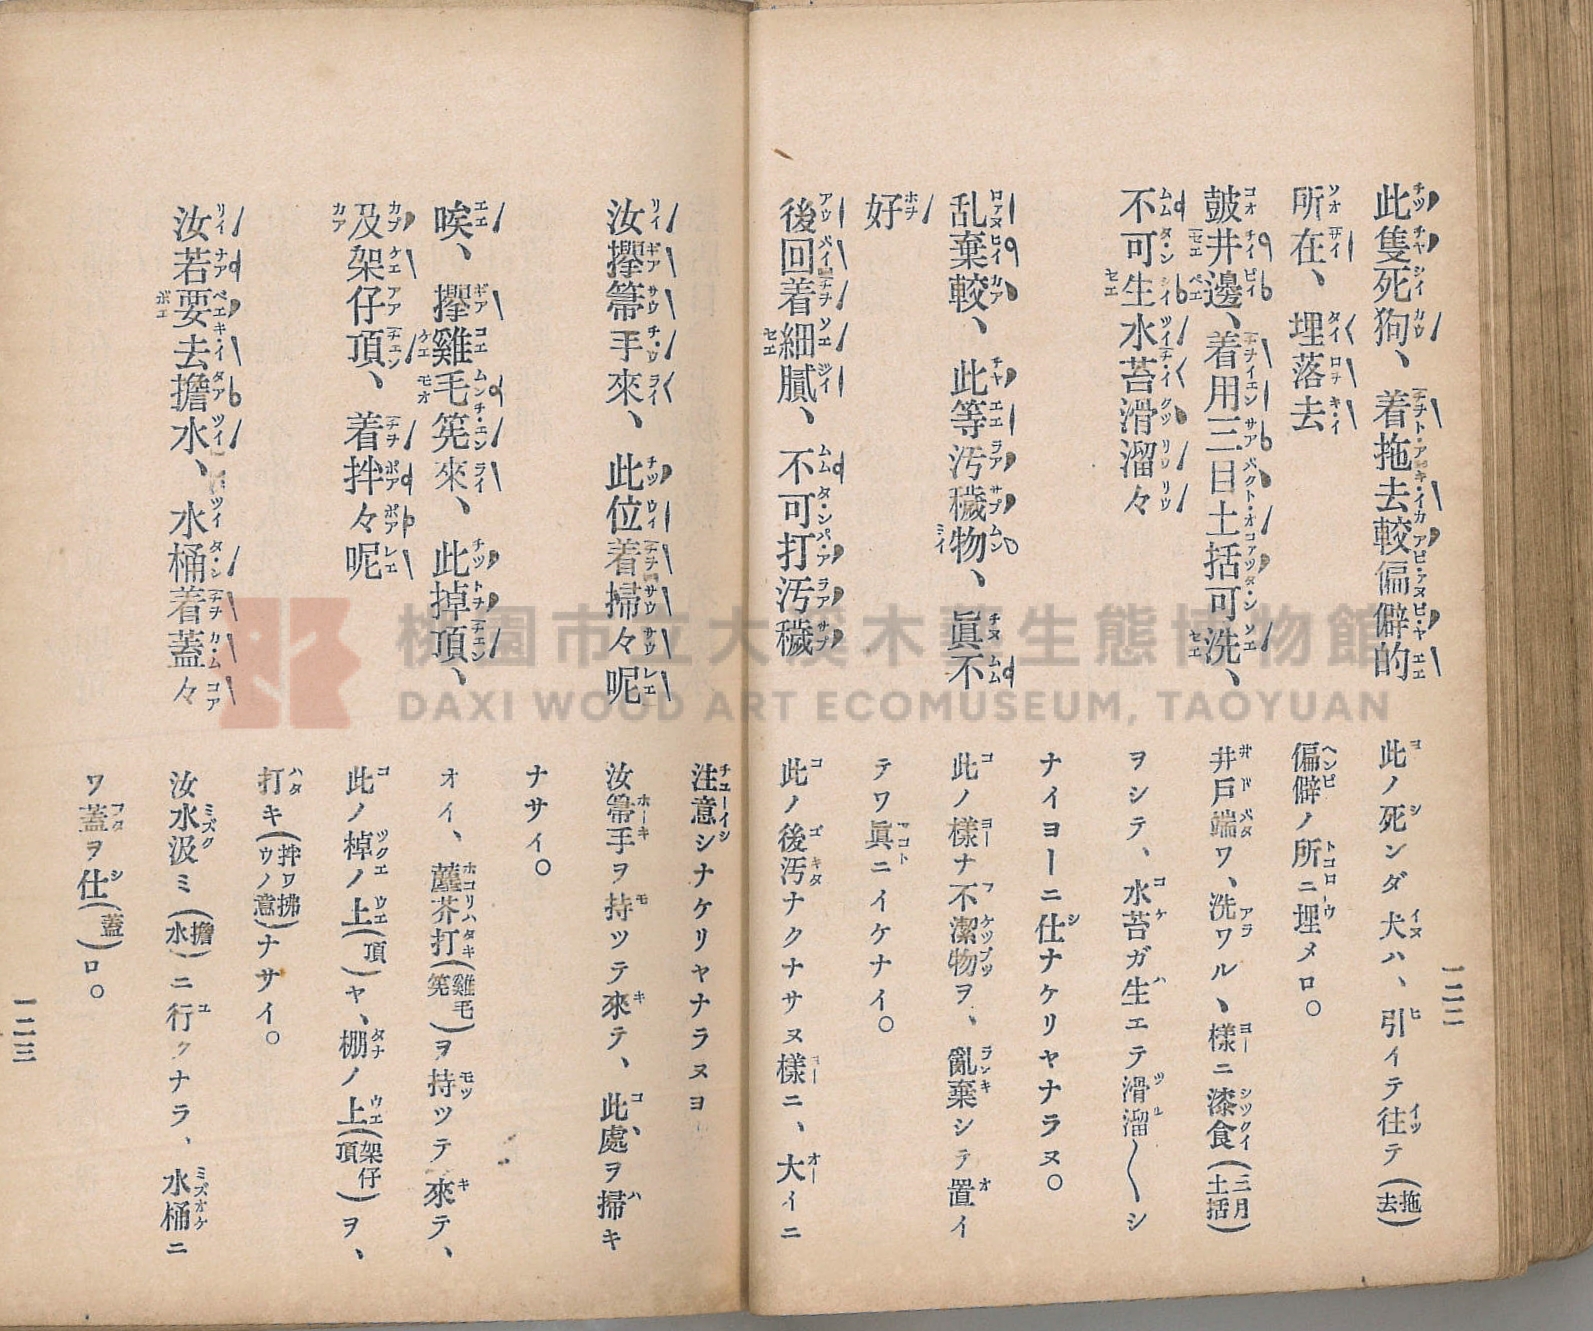 此隻死狗、着拖去較偏僻的
所在、埋落去
皷井邊、着用三日土括可洗、
不可生水苔滑溜々
乱棄較、此等汚穢物、眞不
好
後回着細膩、不可打汚穢
此ノ死ンダ犬ハ、引イテ往テ(拖去)
偏僻ノ所ニ埋メロ。
井戸端ワ、洗ワル、樣ニ漆食(三月土括)
ヲシテ、水苔ガ生エテ滑溜〱シ
ナイヨーニ仕ナケリヤナラヌ。
此ノ樣ナ不潔物ヲ、亂棄シテ置イ
テワ眞ニイケナイ。
此ノ後汚ナクナサヌ樣ニ、大イニ
一二二
汝攑箒手來、此位着掃々呢
唉、攑雞毛筅來、此掉頂、
及架仔頂、着拌々呢
汝若要去擔水、水桶着蓋々
注意シナケリヤナラヌヨ
汝箒手ヲ持ツテ來テ、此處ヲ掃キ
ナサイ。
オイ、塵芥打(雞毛筅)ヲ持ツテ來テ、
此ノ棹ノ上(頂)ヤ、棚ノ上(架仔頂)ヲ、
打キ(拌ワ拂ウノ意)ナサイ。
汝水汲ミ(擔水)ニ行クナラ、水桶ニ
ワ蓋ヲ仕(蓋)ロ。
一二三
桃園市立大溪木藝生態博物館
DAXI WOOD ART ECOMUSEUM, TAOYUAN